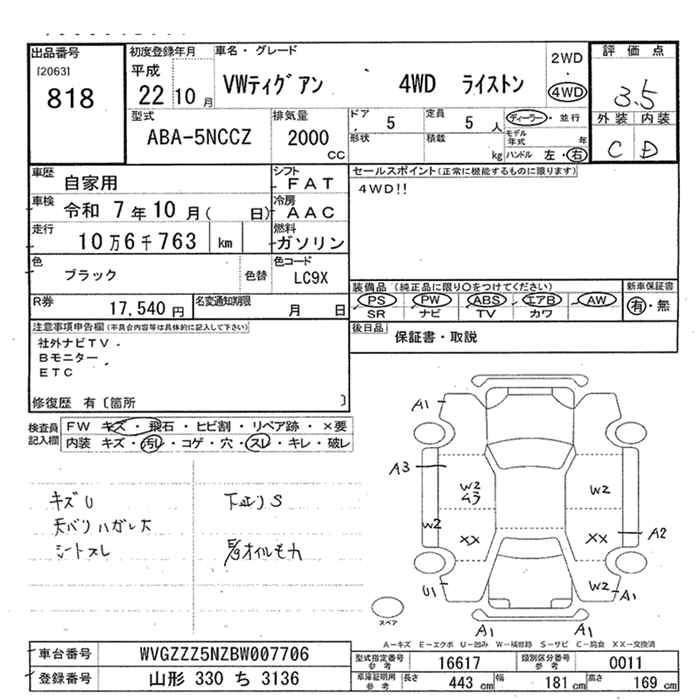 出品番号
[2063]
818
初度登録年月
平成
22 10 月
車名・グレード
VWティグアン 4WD ライストン
2WD
・
4WD
評価点
3.5
外装 内装
C D
型式
ABA-5NCCZ
排気量
2000
CC
ドア
5
定員
5 人
形状
積載
kg
ディーラー・並行
モデル年式 年
ハンドル 左・右
車歴
自家用
シフト
FAT
車検
令和 7年10月( 日)
冷房
AAC
走行
10万6千763 km
燃料
ガソリン
色
ブラック
色替
色コード
LC9X
R券
17,540 円
名変通知期限
月 日
セールスポイント(正常に機能するものに限ります)
4WD!!
装備品 (純正品に限り○をつけてください)
PS PW ABS エアB AW
SR ナビ TV カワ
新車保証書
有・無
後日品
保証書・取説
注意事項申告欄(不具合内容等は具体的に記入して下さい)
社外ナビTV
Bモニター
ETC
修復歴 有〔箇所 〕
検査員
記入欄
FW キズ・飛石・ヒビ割・リペア跡・×要
内装 キズ・汚レ・コゲ・穴・スレ・キレ・破レ
キズU
天バリハガレ大
シートスレ
下廻りS
オイルモレ
A1
A3
W2
ムラ
W2
W2
XX
XX
A2
U1
W2
A1
A1
A1
スペア
A−キズ E−エクボ U−凹み W−補修跡 S−サビ C−腐食 XX−交換済
車台番号
WVGZZZ5NZBW007706
登録番号
山形 330 ち 3136
型式指定番号
参考
16617
類別区分番号
参考
0011
車庫証明用
参考
長さ 443 cm
幅 181 cm
高さ 169 cm